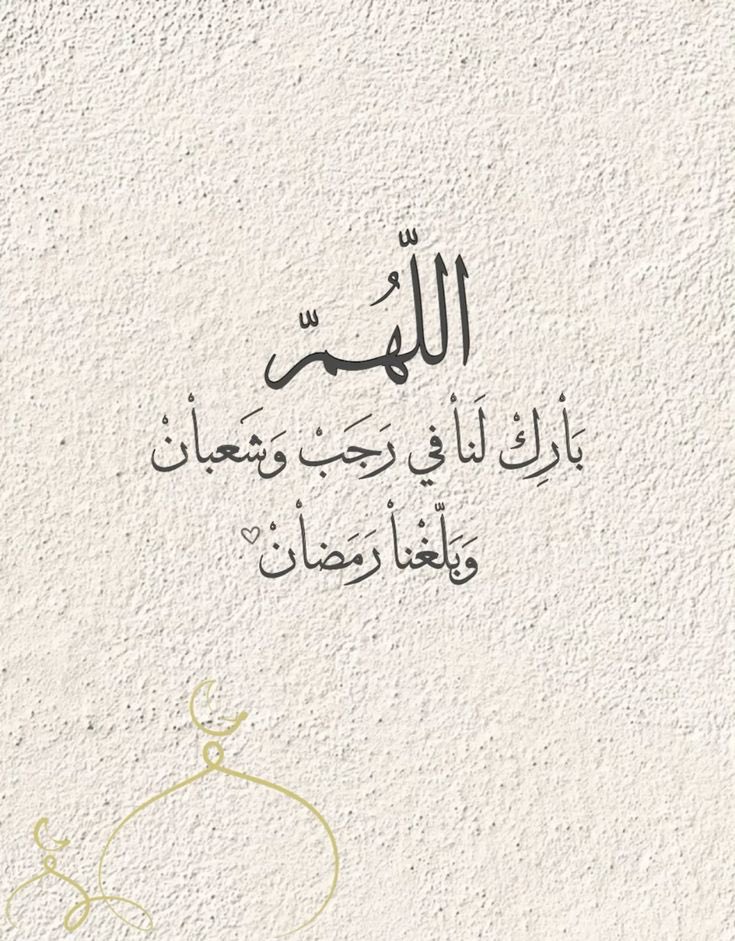 اللَّهُمَّ
بَأرِكْ لَنأ في رَجَبْ وَشَعبأنْ
وَبَلّغْنأ رَمَضأنْ